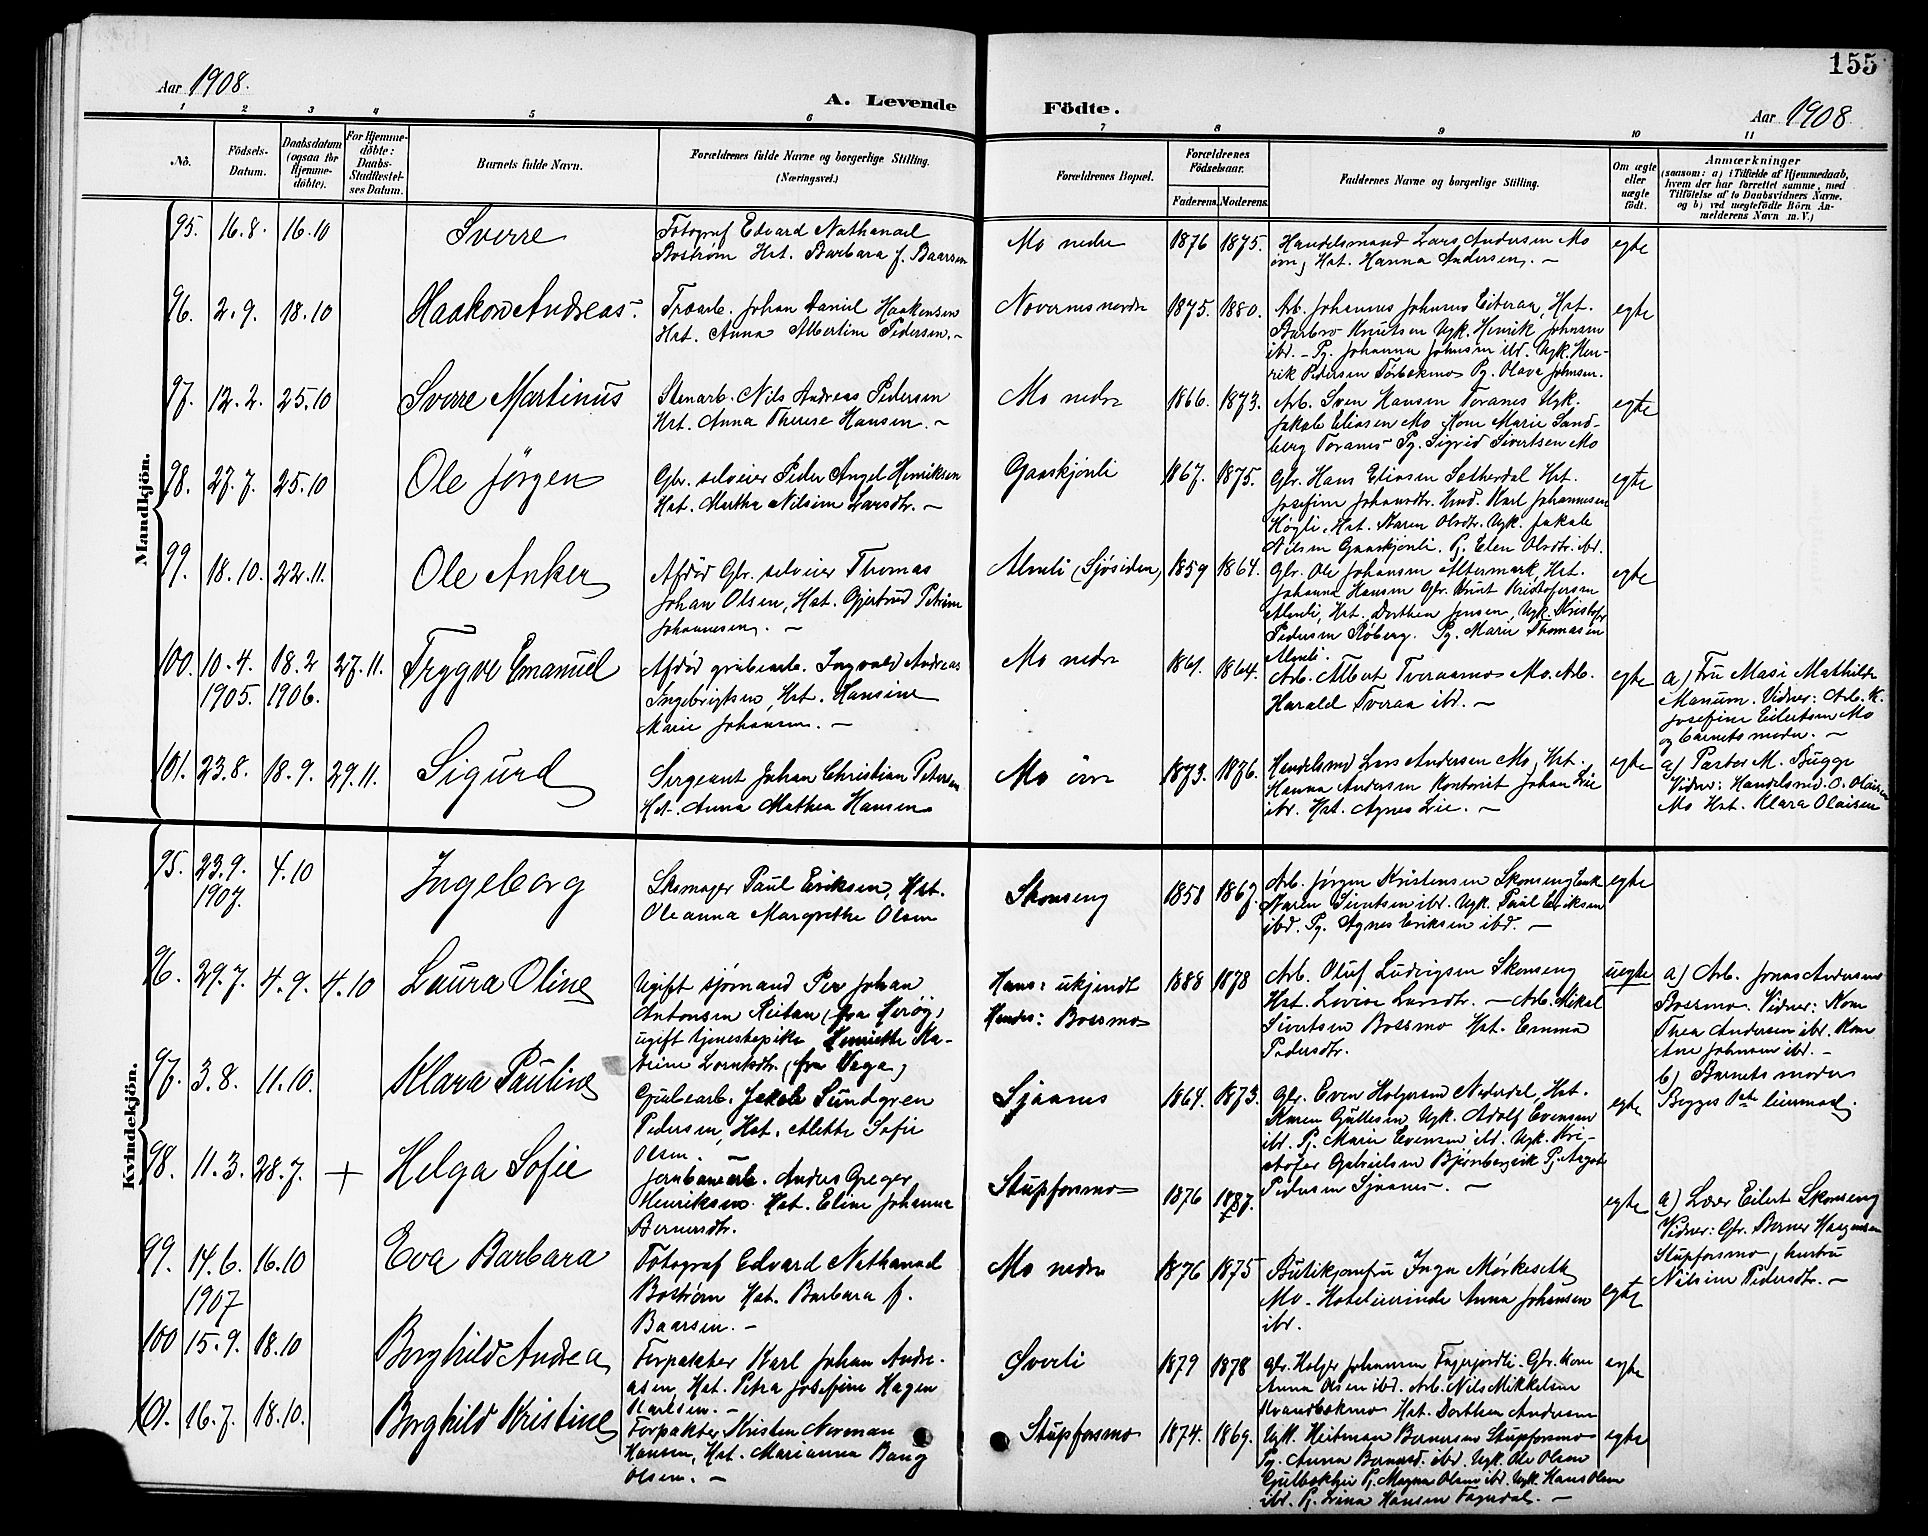 155
Aar 1908.
A. Levende Födte.
Aar 1908.
1 2 3 4 5 6 7 8 9 10 11
No.
Födsels-
Datum.
Daabsdatum
(ogsaa for
Hjemme-
döbte).
For Hjemme-
döbte:
Daabs-
Stadfæstel-
ses Datum.
Barnets fulde Navn.
Forældrenes fulde Navne og borgerlige Stilling.
(Næringsvei.)
Forældrenes Bopæl.
Forældrenes
Födselsaar.
Faderens. Moderens.
Faddernes Navne og borgerlige Stilling.
Om ægte
eller
uægte
födt.
Anmærkninger
(saasom: a) i Tilfælde af Hjemmedaab,
hvem der har forrettet samme, med
Tilföielse af to Daabsvidners Navne.
og b) ved uægtefödte Börn An-
melderens Navn m. V.)
Mandkjön.
95. 16.8. 16.10 Sverre
Fotograf Edvard Nathanael
Boström Hst. Barbara f. Baarsen
Mo nedre 1876 1875.
Handelsmand Lars Andersen Mo
övre, Hst. Hanna Andersen. –
egte
96. 2.9. 18.10 Haakon Andreas.
Træarb. Johan Daniel Haakensen
Hst. Anna Albertine Pedersen. –
1875. 1880.
Arb. Johannes Johnsen Eiteraa, Hst.
Barbro Knutsen Ugk. Henrik Johnsen
ibd. – Pg. Johanna Johnsen ibd. Ugk. Hen-
rik Pedersen Pg. Olava Johnsen.
egte
97. 12.2. 25.10 Sverre Martinus
Stenarb. Nils Andreas Pedersen
Hst. Anna Therese Hansen. –
Mo nedre 1866. 1873.
Arb. Sven Hansen Toranes Ugk.
Jakob Eliasen Mo Kone Marie Sand-
berg Toranes Pg. Sigrid Sivertsen Mo
egte
98. 27.7. 25.10 Ole Jørgen
Gbr. selveier Peder Angel Henriksen
Hst. Martha Nilsine Larsdtr. –
Gaaskjønli 1867. 1875.
Gbr. Hans Eliasen Hst.
Josefine Johansdtr. Karl Johannesen
Høgli, Hst. Karen Olsdtr. Ugk. Jakob
Nilsen Gaaskjønli. P. Elen Olsdtr. ibd.
egte
99. 18.10. 22.11. Ole Anker
Afdød Gbr. selveier Thomas
Johan Olsen, Hst. Gjertrud Petrine
Johannesen. –
Almli (Sjøsiden) 1859 1864.
Gbr. Ole Johansen Altermark, Hst.
Johanna Hansen Gbr. Knut Kristofersen
Almli, Hst. Dorthea Jensen, Ugk. Kristofer
Pedersen Røberg. Pg. Marie Thomasen
Almli.
egte
100. 10.4. 18.2 27.11. Trygve Emanuel
1905. 1906.
Afdød grubearb. Ingvald Andreas
Ingebrigtsen, Hst. Hansine
Marie Johansen. –
Mo nedre 1861. 1864.
Arb. Albert Tveraamo Mo. Arb.
Harald Tveraa ibd. –
egte
a) Fru Masi Mathilde
Vidner: Arb. K.
Josefine Eilertsen Mo
og barnets moder. –
101. 23.8. 18.9. 29.11. Sigurd
Sergeant Johan Christian Petersen
Hst. Anna Mathea Hansen
Mo övre 1873. 1876.
Handelsmd Lars Andersen Mo, Hst.
Hanna Andersen Kontorist Johan Lie
ibd. Hst. Agnes Lie. –
egte
a) Pastor M. Bugge
Vidner: Handelsmd. O. Olaisen
Mo Hst. Klara Olaisen
Kvindekjön.
95. 23.9. 4.10 Ingeborg
1907.
Skomager Paul Eriksen, Hst.
Oleanna Margrethe Olsen
Skonseng 1858 1867.
Arb. Jørgen Kristensen Skonseng Enk
Karen Sivertsen ibd. Ugk. Paul Eriksen
ibd. Pg. Agnes Eriksen ibd. –
egte
96. 29.7. 4.9. 4.10 Laura Oline
Ugift sjømand Per Johan
Antonsen Reitan (fra Herøy)
ugift tjenestepike Henriette Ka-
trine Lorntsdtr. (fra Vega)
Hans: ukjendt
Hendes: Bossmo
1888 1878
Arb. Oluf Ludvigsen Skonseng
Hst. Lovise Larsdtr. – Arb. Mikal
Sivertsen Bossmo Hst. Emma
Pedersdtr.
uegte
a) Arb. Jonas Andersen
Bossmo. Vidner: Kone
Thea Andersen ibd. Kone
Ane Johnsen ibd. –
b) Barnets moder
Begges 1ste leiermaal.
97. 3.8. 11.10. Klara Pauline
Grubearb. Jakob Sundgren
Pedersen, Hst. Alette Sofie
Olsen. –
Sjaanes 1864. 1873.
Gbr. Even Holgersen Nederdal, Hst.
Karen Gullesen Ugk. Adolf Evensen
ibd. P. Marie Evensen ibd. Ugk. Kri-
stofer Gabrielsen Bjørnbergvik P.
Pedersen Sjaanes. –
egte
98. 11.3. 28.7. + Helga Sofie
Jernbanearb. Anders Greger
Henriksen. Hst. Eline Johanna
Bernersdtr.
Stupforsmo 1876 1887.
egte
a) Lærer Eilert Skonseng
Vidner: Gbr. Berner Haagensen
Stupforsmo, hustru
Nilsine Pedersdtr. –
99. 14.6. 16.10 Eva Barbara
1907
Fotograf Edvard Nathanael
Boström Hst. Barbara f.
Baarsen. –
Mo nedre 1876 1875
Butikjomfru Inga
Mo. Hoteleierinde Anna Johansen
ibr.
egte
100 15.9. 18.10 Borghild Andrea
Forpakter Karl Johan Andre-
asen, Hst. Petra Josefine Hagen
Karlsen. –
Sverli 1879 1878
Gbr. Holger Johansen Fagerjordli. Gbr. Kone
Anna Olsen ibd. Arb. Nils Mikkelsen
Hst. Dorthea Andersen
egte
101. 16.7. 18.10. Borghild Kristine
Forpakter Kristen Norman
Hansen, Hst. Marianna Bang
Olsen. –
Stupforsmo 1874. 1869.
Ugk. Heitman Bernersen Stupforsmo
Pg. Anna Bernersd. ibd. Ugk. Ole Olsen
P. Magna Olsen ibd. Ugk. Hans Olsen
ibd. P. Hansen
egte